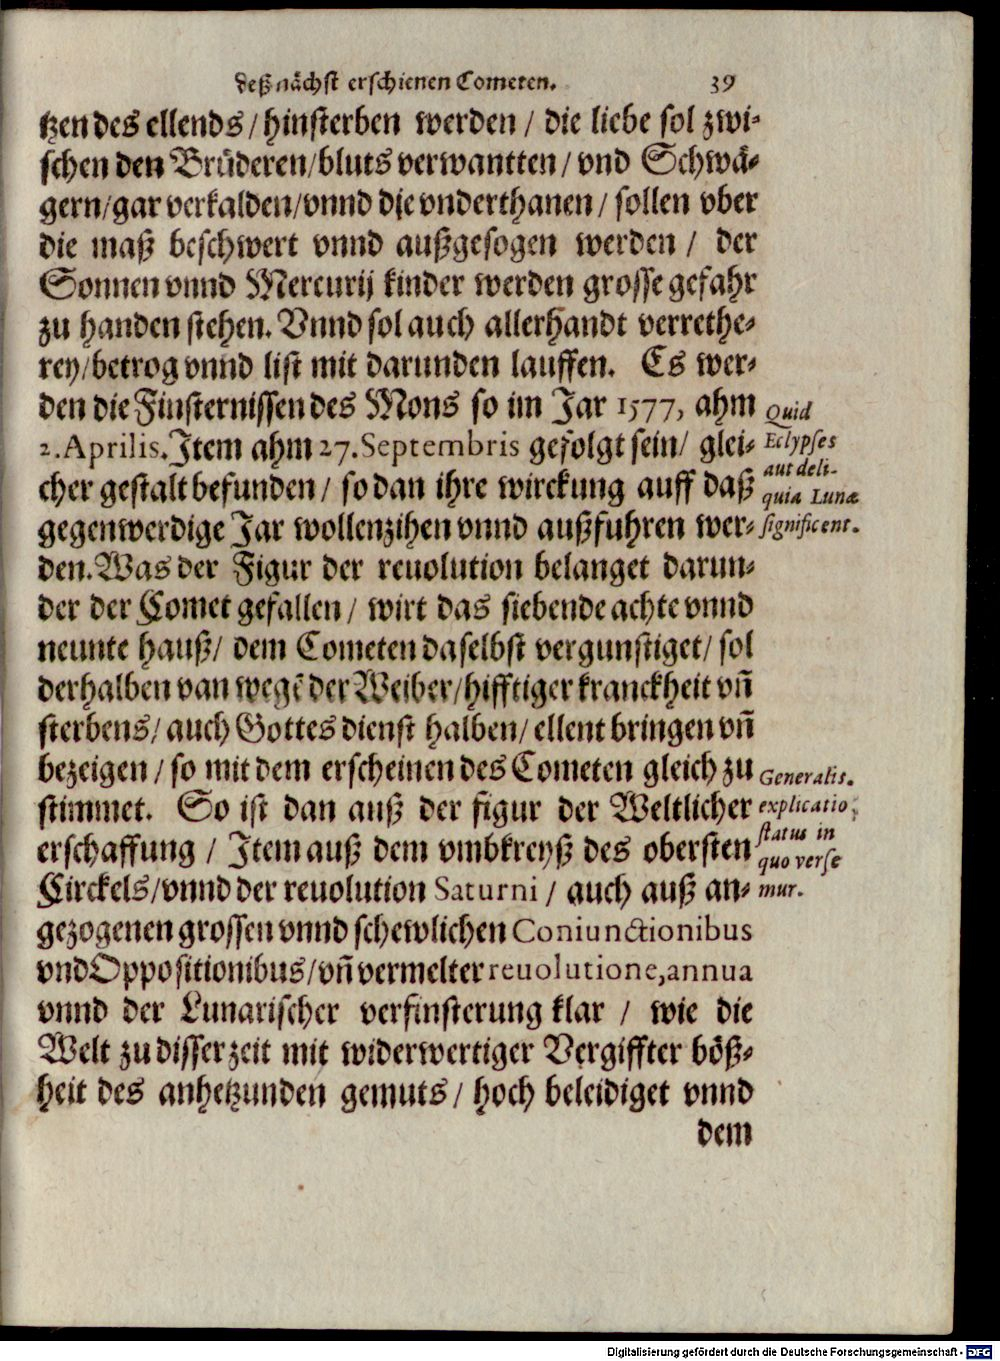 deß nächst erschienen Cometen. 39
tzen des ellends / hinsterben werden / die liebe sol zwi-
schen den Brüderen / bluts verwantten / vnd Schwä-
gern / gar verkalden / vnnd die vnderthanen / sollen vber
die maß beschwert vnnd außgesogen werden / der
Sonnen vnnd Mercurij kinder werden grosse gefahr
zu handen stehen. Vnnd sol auch allerhandt verrethe-
rey / betrog vnnd list mit darunden lauffen. Es wer-
den die Finsternissen des Mons so im Jar 1577, ahm
2. Aprilis. Item ahm 27. Septembris gefolgt sein / glei-
cher gestalt befunden / so dan ihre wirckung auff daß
gegenwerdige Jar wollenzihen vnnd außfuhren wer-
den. Was der Figur der reuolution belanget darun-
der der Comet gefallen / wirt das siebende achte vnnd
neunte hauß / dem Cometen daselbst vergunstiget / sol
derhalben van wegē der Weiber / hifftiger kranckheit vñ
sterbens / auch Gottes dienst halben / ellent bringen vñ
bezeigen / so mit dem erscheinen des Cometen gleich zu
stimmet. So ist dan auß der figur der Weltlicher
erschaffung / Item auß dem vmbkreyß des obersten
Circkels / vnnd der reuolution Saturni / auch auß an-
gezogenen grossen vnnd schewlichen Coniunctionibus
vnd Oppositionibus / vñ vermelter reuolutione, annua
vnnd der Lunarischer verfinsterung klar / wie die
Welt zu disser zeit mit widerwertiger Vergiffter böß-
heit des anhetzunden gemuts / hoch beleidiget vnnd
dem
Quid
Eclypses
aut deli-
quia Lunæ
significent.
Generalis.
explicatio
status in
quo verse
mur.
Digitalisierung gefördert durch die Deutsche Forschungsgemeinschaft - DFG